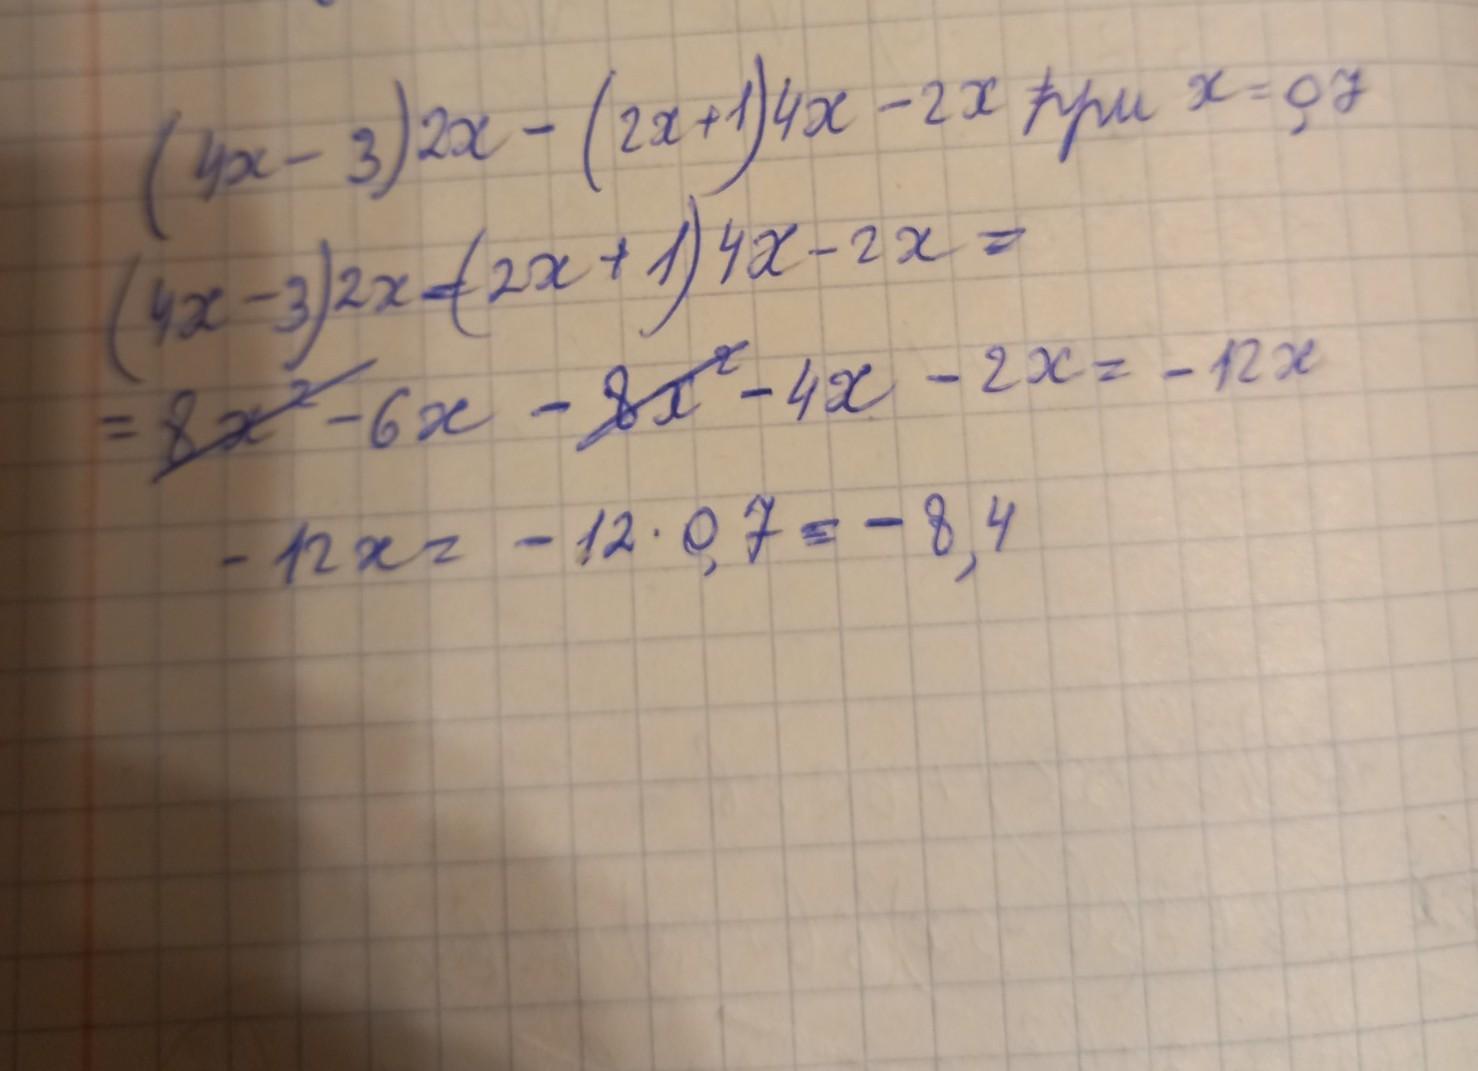 (4x - 3)2x - (2x+1)4x - 2x при x = 0,7
(4x - 3)2x - (2x + 1)4x - 2x =
= 8x² - 6x - 8x² - 4x - 2x = - 12x
- 12x = - 12 · 0,7 = - 8,4